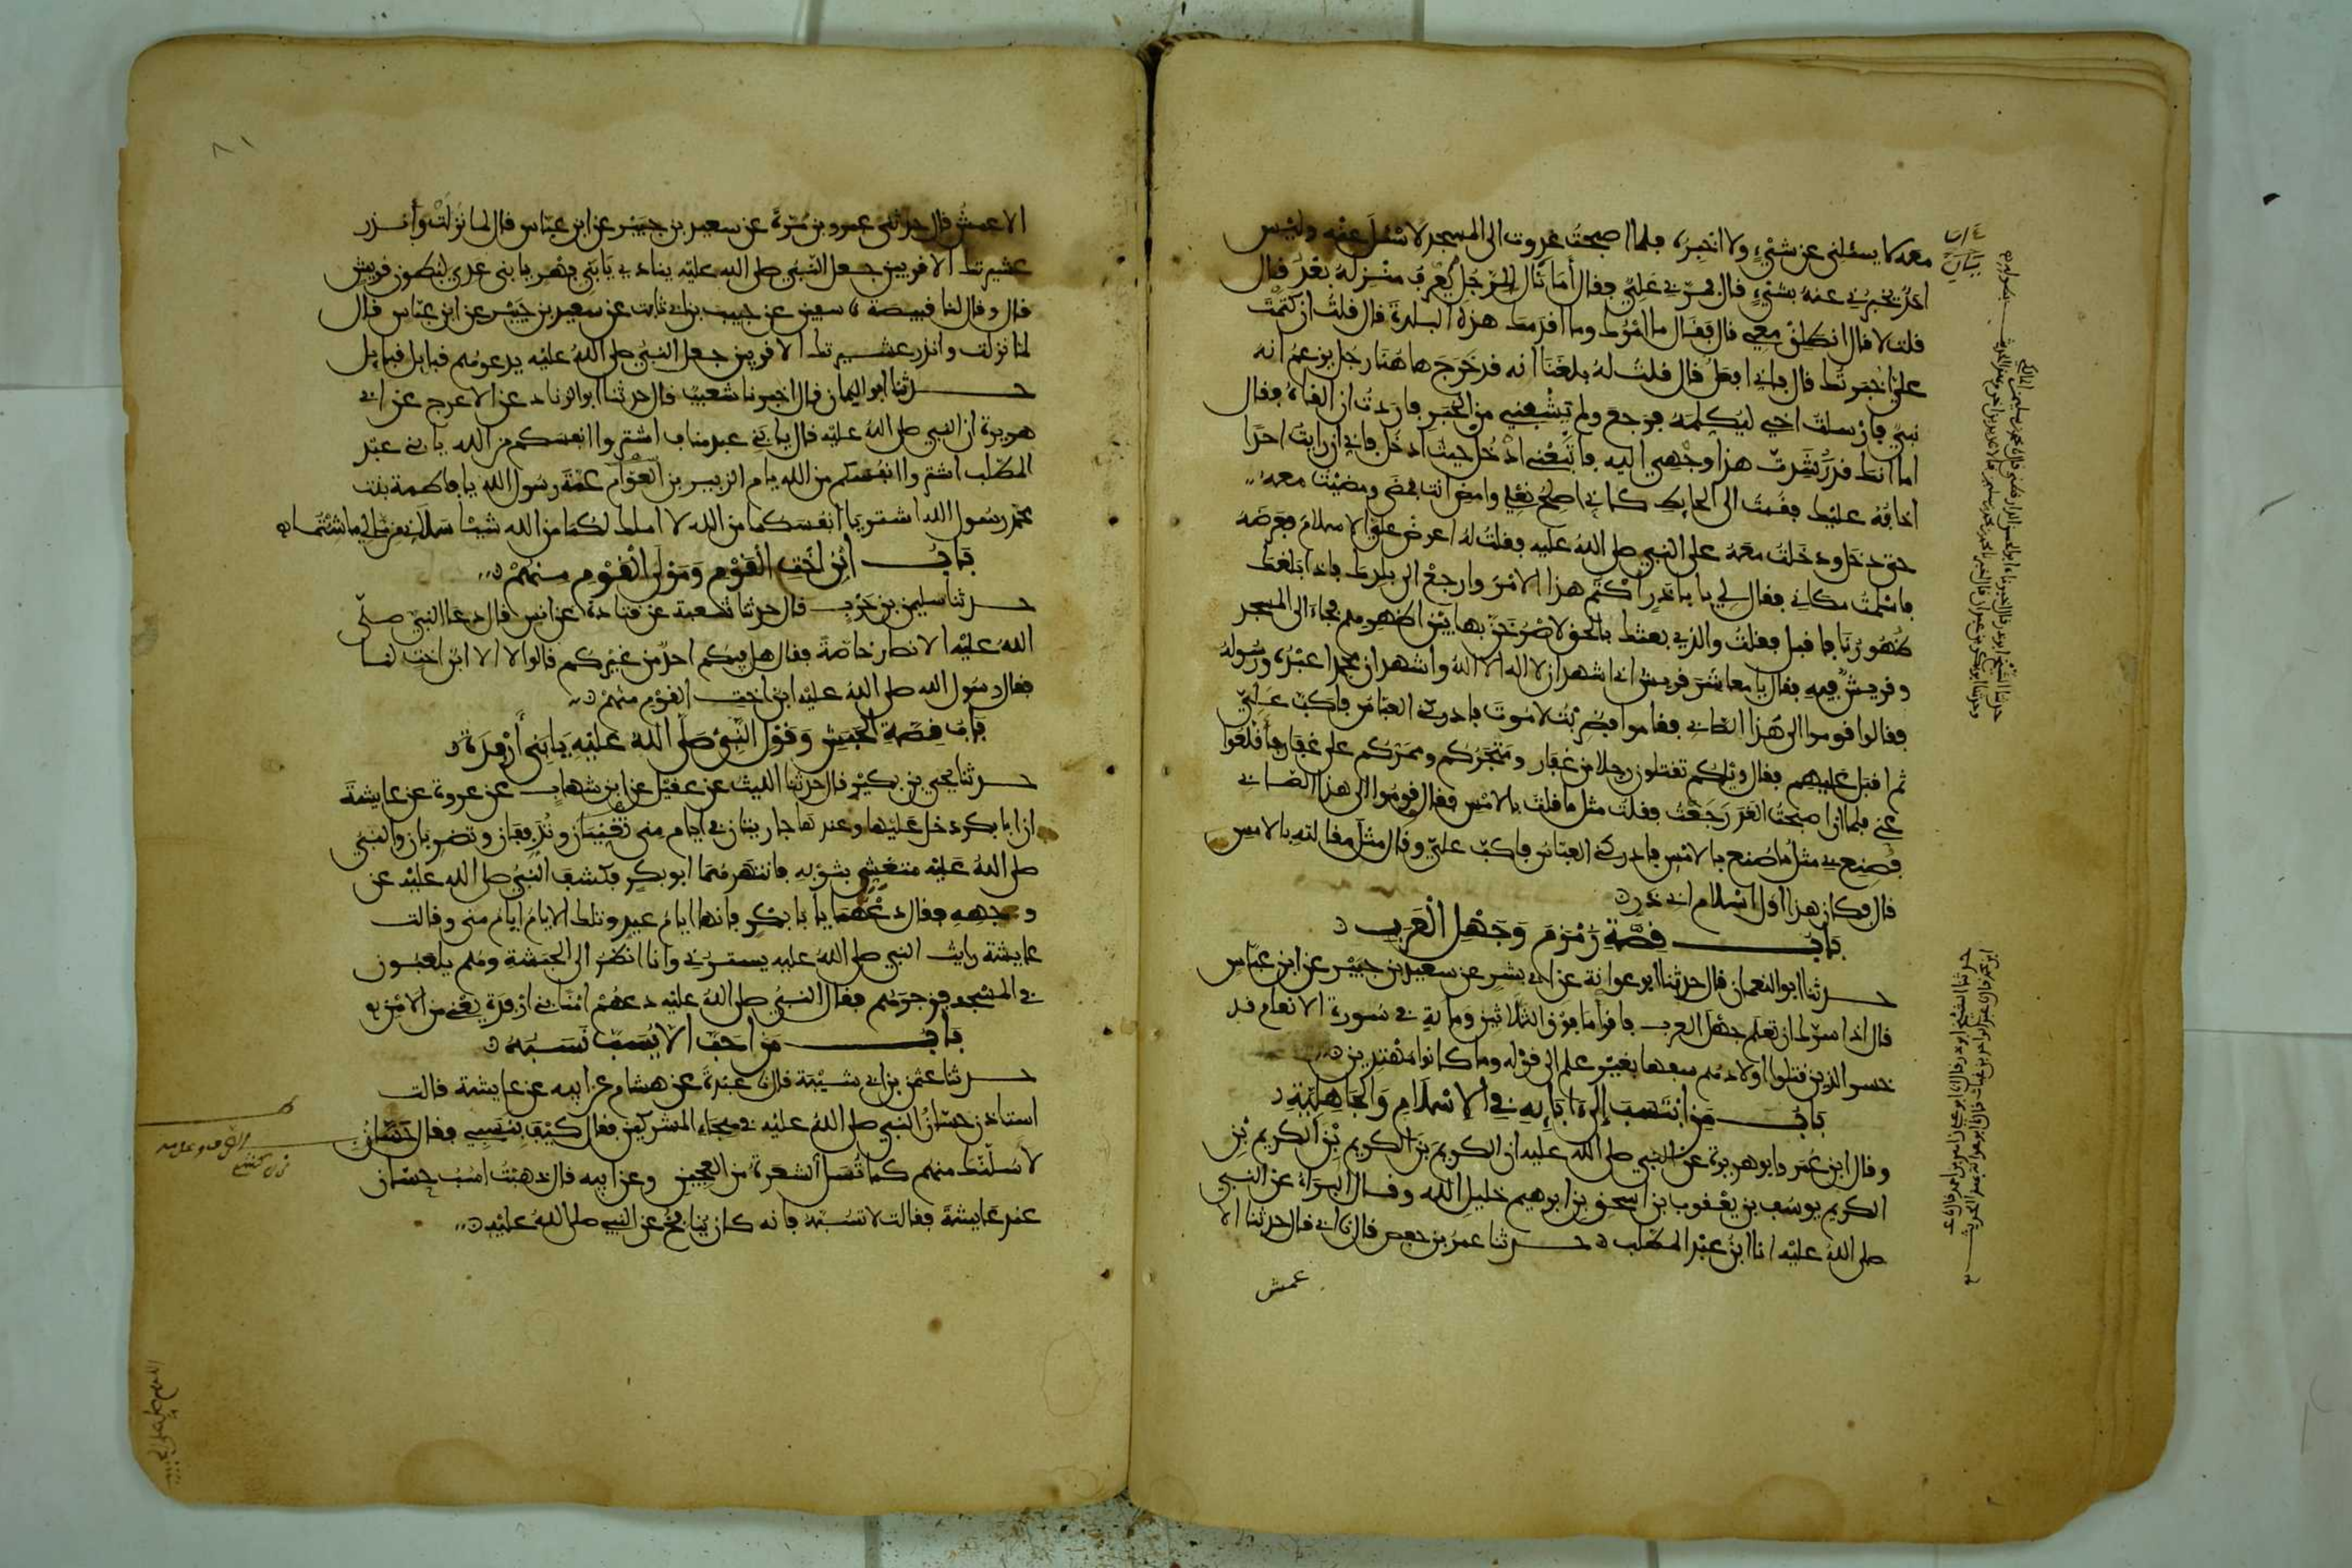 معه لا يسئلني عن شيء ولا اخبره فلما اصبحت غدوت الى المسجد لاسئل عنه وليس
احد يخبرني عنه بشيء قال فمر بي علي فقال أما نال للرجل يعرف منزله بعد قال
قلت لا قال انطلق معي قال فقال ما امرك وما اقدمك هذه البلدة قال قلت ان كتمت
علي اخبرتك قال فاني افعل قال قلت له بلغنا انه قد خرج هاهنا رجل يزعم انه
نبي فارسلت اخي ليكلمه فرجع ولم يشفني من الخبر فاردت ان القاه فقال
اما انك قد رشدت هذا وجهي اليه فاتبعني ادخل حيث ادخل فاني ان رايت احدا
اخافه عليك فقمت الى الحايط كاني اصلح نعلي وامض انت فمضى ومضيت معه
حتى دخل ودخلت معه على النبي صلى الله عليه فقلت له اعرض علي الاسلام فعرضه
فاسلمت مكاني فقال لي يا باذر اكتم هذا الامر وارجع الى بلدك فاذا بلغك
ظهورنا فاقبل فقلت والذي بعثك بالحق لاصرخن بها بين اظهرهم فجاء الى المسجد
وقريش فيه فقال يا معاشر قريش اني اشهد ان لا اله الا الله واشهد ان محمدا عبده ورسوله
فقالوا قوموا الى هذا الصابي فقاموا فضربت لاموت فادركني العباس فاكب علي
ثم اقبل عليهم فقال ويلكم تقتلون رجلا من غفار ومتجركم وممركم على غفار فأقلعوا
عني فلما ان اصبحت الغد رجعت فقلت مثل ما قلت بالامس فقالوا قوموا الى هذا الصابي
فصنع بي مثل ما صنع بالامس فادركني العباس فاكب علي وقال مثل مقالته بالامس
قال فكان هذا اول اسلام ابي ذر
باب قصة زمزم وجهل العرب
حدثنا ابو النعمان قال حدثنا ابو عوانة عن ابي بشر عن سعيد بن جبير عن ابن عباس
قال اذا سرك ان تعلم جهل العرب فاقرأ ما فوق الثلاثين ومايةٍ في سورة الانعام قد
خسر الذين قتلوا اولادهم سفها بغير علم الى قوله وما كانوا مهتدين
باب من انتسب إلى ءابايه في الاسلام والجاهلية
وقال ابن عمر وابو هريرة عن النبي صلى الله عليه ان الكريم بن الكريم بن الكريم بن
الكريم يوسف بن يعقوب بن اسحق بن ابرهيم خليل الله وقال البراء عن النبي
صلى الله عليه انا ابن عبد المطلب حدثنا عمر بن حفص قال نا ابي قال حدثنا الا
عمش
الاعمش قال حدثني عمرو بن مرة عن سعيد بن جبير عن ابن عباس قال لما نزلت وأنذر
عشيرتك الاقربين جعل النبي صلى الله عليه ينادي يا بني فهر يا بني عدي لبطون قريش
قال وقال لنا قبيصة نا سفين عن حبيب بن ابي ثابت عن سعيد بن جبير عن ابن عباس قال
لما نزلت وانذر عشيرتك الاقربين جعل النبي صلى الله عليه يدعوهم قبايل قبايل
حدثنا ابو اليمان قال اخبرنا شعيب قال حدثنا ابو الزناد عن الاعرج عن ابي
هريرة ان النبي صلى الله عليه قال يا بني عبد مناف اشتروا انفسكم من الله يا بني عبد
المطلب اشتروا انفسكم من الله يا ام الزبير بن العوام عمة رسول الله يا فاطمة بنت
محمد رسول الله اشتريا انفسكما من الله لا املك لكما من الله شيئا سلاني من مالي ما شئتما
باب ابن اخت القوم ومولى القوم منهم
حدثنا سليمن بن حرب قال حدثنا شعبة عن قتادة عن انس قال دعا النبي صلى
الله عليه الانصار خاصة فقال هل فيكم احد من غيركم قالوا لا الا ابن اخت لنا
فقال رسول الله صلى الله عليه ابن اخت القوم منهم
باب قصة الحبش وقول النبي صلى الله عليه يا بني أرفدة
حدثنا يحيى بن بكير قال حدثنا الليث عن عقيل عن ابن شهاب عن عروة عن عايشة
ان ابا بكر دخل عليها وعندها جاريتان في ايام منى تغنيان وتدففان وتضربان والنبي
صلى الله عليه متغشي بثوبه فانتهرهما ابو بكر فكشف النبي صلى الله عليه عن
وجهه فقال دعهما يا با بكر فانها ايام عيد وتلك الايام ايام منى وقالت
عايشة رايت النبي صلى الله عليه يسترني وانا انظر الى الحبشة وهم يلعبون
في المسجد فزجرهم فقال النبي صلى الله عليه دعهم امنا بني ارفدة يعني من الامن
باب من احب الا يسب نسبه
حدثنا عثمن بن ابي شيبة قال نا عبدة عن هشام عن ابيه عن عايشة قالت
استاذن حسان النبي صلى الله عليه في هجاء المشركين فقال كيف بنسبي فقال حسان
لاسلنك منهم كما تسل الشعرة من العجين وعن ابيه قال ذهبت اسب حسان
عند عايشة فقالت لا تسبه فانه كان ينافح عن النبي صلى الله عليه